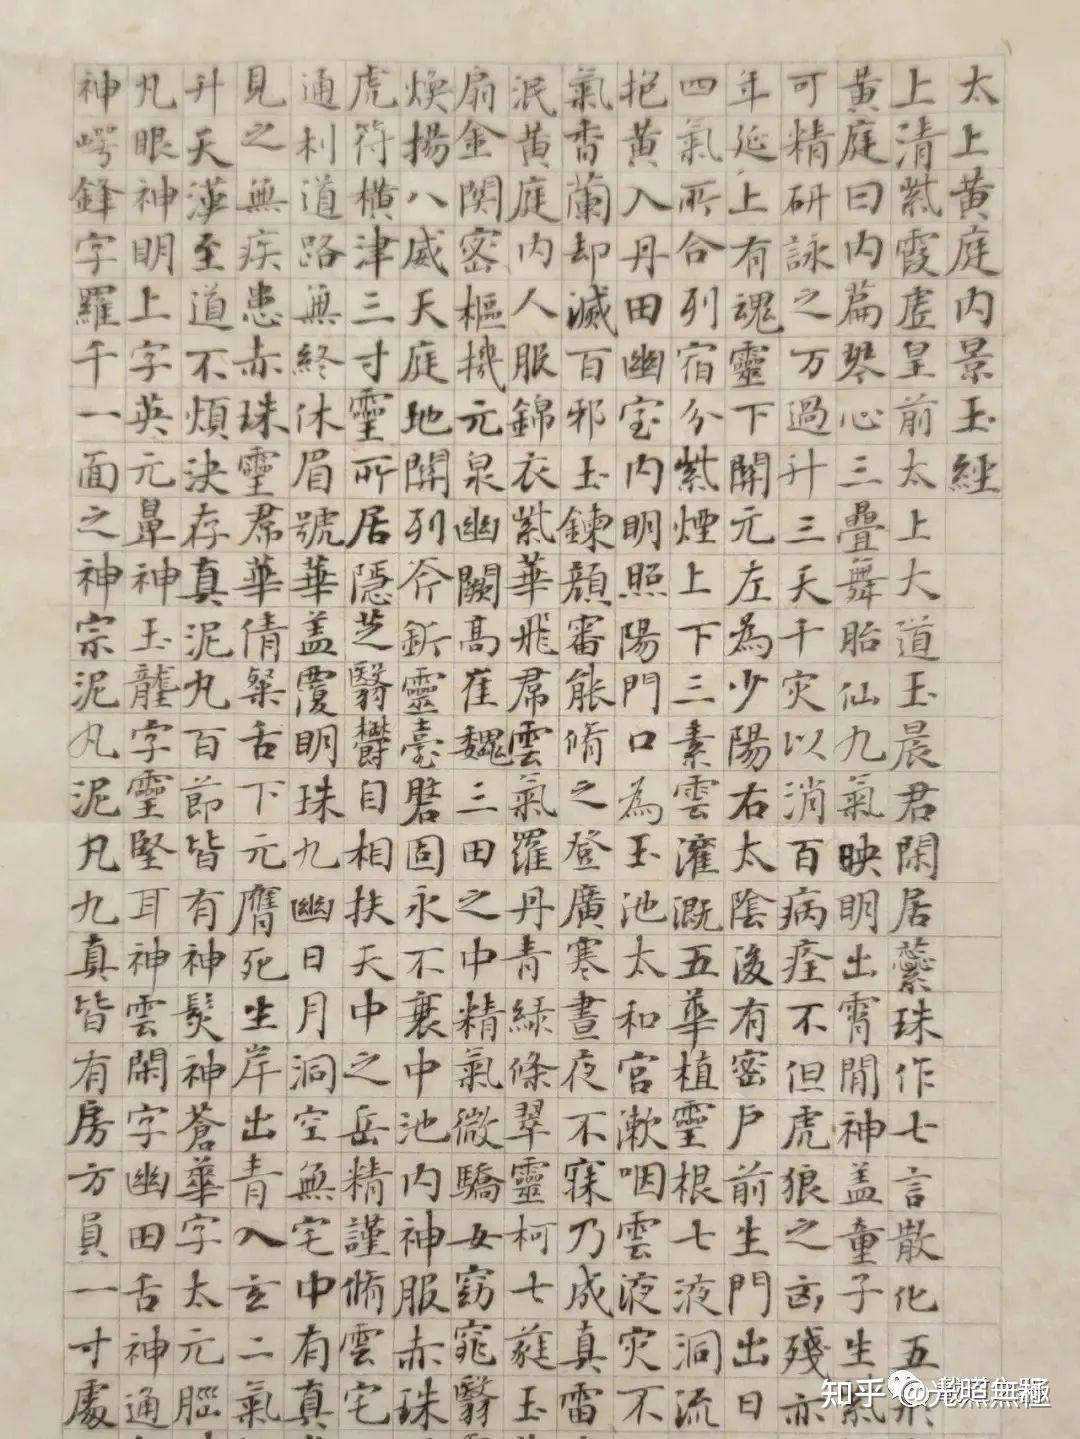 太上黃庭内景玉經
上清紫霞虛皇前太上大道玉晨君閑居蘂珠作七言散化五形
黃庭曰内篇琴心三疊舞胎仙九氣映明出霄間神盖童子生
可精研詠之万過升三天千灾以消百病痊不但虎狼之凶殘亦
年延上有魂靈下關元左為少陽右太陰後有密戶前生門出日
四氣所合列宿分紫煙上下三素雲灌溉五華植靈根七液洞流
抱黃入丹田幽室内明照陽門口為玉池太和宮漱咽雲液灾不
氣香蘭却滅百邪玉鍊顔審能脩之登廣寒晝夜不寐乃成真雷
泯黃庭内人服錦衣紫華飛帬雲氣羅丹青綠條翠靈柯七蕤玉
扇金関密樞機元泉幽闕高崔巍三田之中精氣微驕女窈窕翳
煥揚八威天庭地關列斧釿靈臺磐固永不衰中池内神服赤珠
虎符橫津三寸靈所居隱芝翳鬱自相扶天中之岳精謹脩雲宅
通利道路無終休眉號華盖覆明珠九幽日月洞空無宅中有真
見之無疾患赤珠靈帬華倩粲舌下元膺死生岸出青入玄二氣
升天漢至道不煩決存真泥丸百節皆有神髮神蒼華字太元腦
丸眼神明上字英元鼻神玉龍字靈堅耳神雲閑字幽田舌神通
神崿鋒字羅千一面之神宗泥丸泥丸九真皆有房方員一寸處
知乎 @光照無極